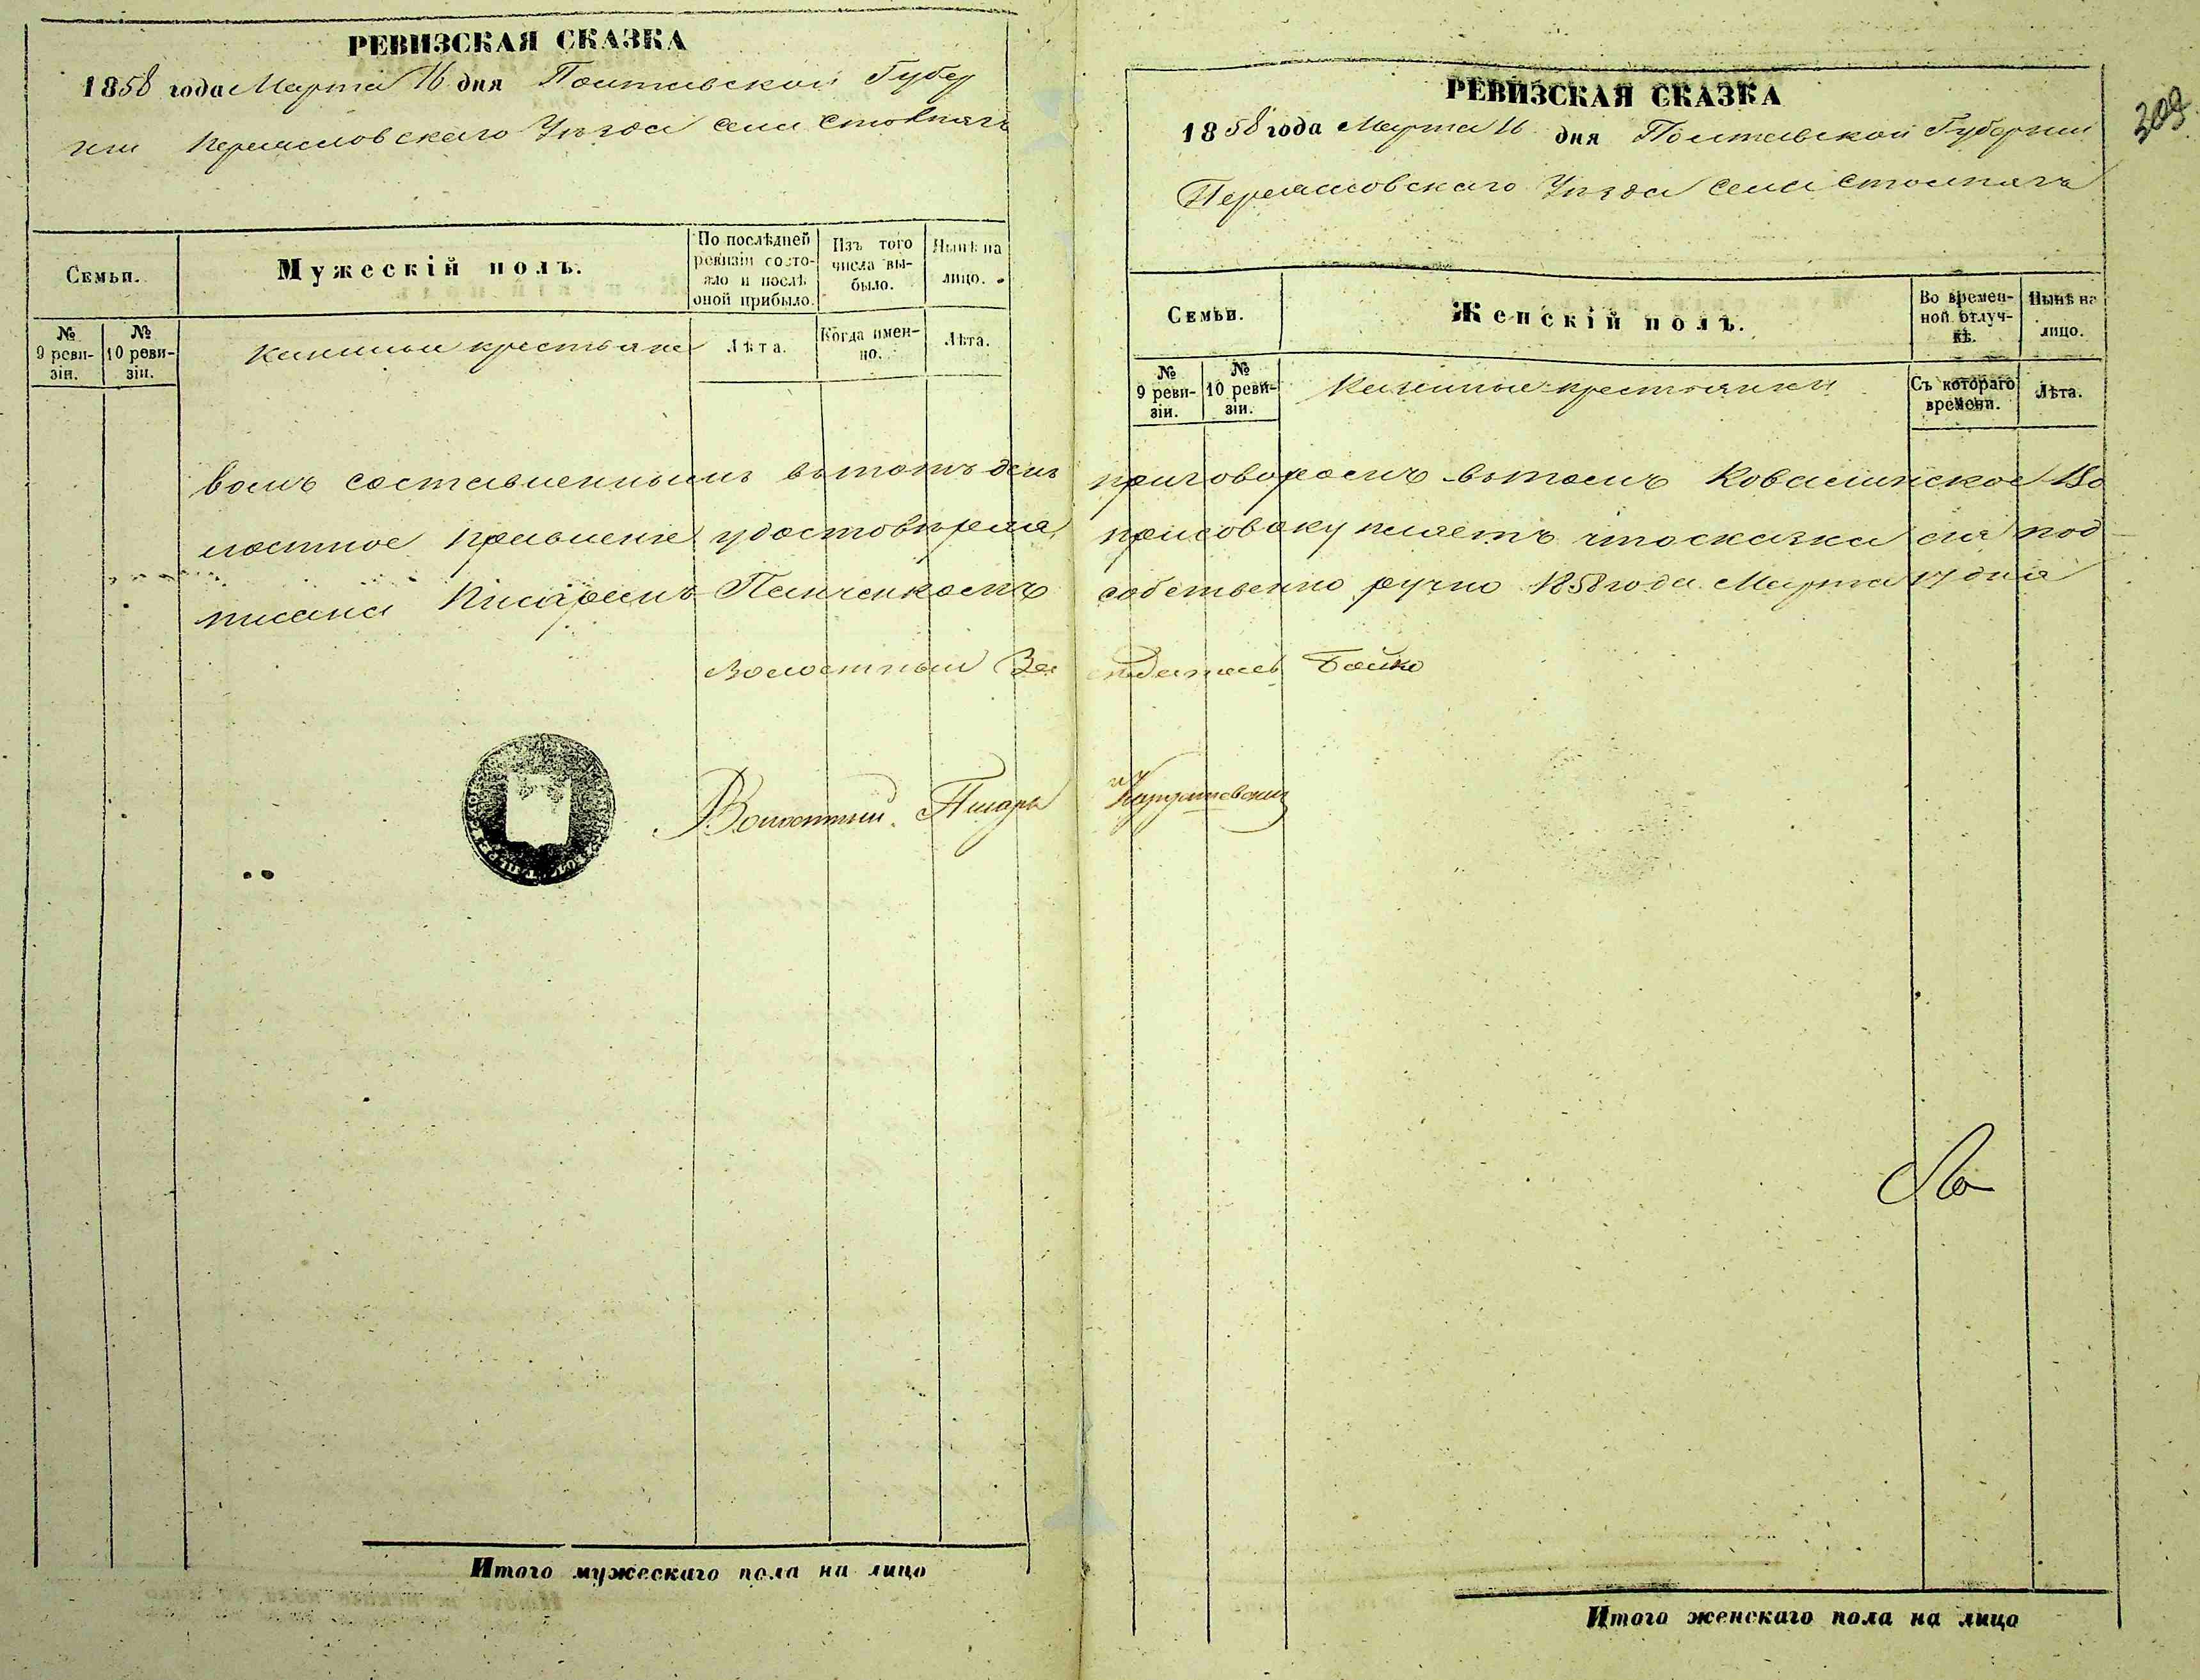 РЕВИЗСКАЯ СКАЗКА
1858 года Марта 16 дня Полтавской Губер
нии Переяславскаго Уѣзда села Стовпягъ
Семьи.
Мужескій полъ.
По послѣдней ревизіи состояло и послѣ оной прибыло.
Изъ того числа выбыло.
Нынѣ на лицо.
№ 9 ревизіи.
№ 10 ревизіи.
Казенные крестьяне
Лѣта.
Когда именно.
Лѣта.
РЕВИЗСКАЯ СКАЗКА
1858 года Марта 16 дня Полтавской Губернии
Переяславскаго Уѣзда села Столпягъ
309
Семьи.
Женскій полъ.
Во временной отлучкѣ.
Нынѣ на лицо.
№ 9 ревизіи.
№ 10 ревизіи.
Казенные крестьянки
Съ котораго времени.
Лѣта.
вомъ составленнымъ вътотъ день приговоромъ вътомъ Ковалинское Во
лостное Правление удостовѣряя, присовокупляетъ чтосказка сия под
писана Писаремъ Панченкомъ собственно ручно 1858 года Марта 17 дня
Волостный Засѣдатель Бойко
Волостный Писарь
Итого мужескаго пола на лицо
Итого женскаго пола на лицо